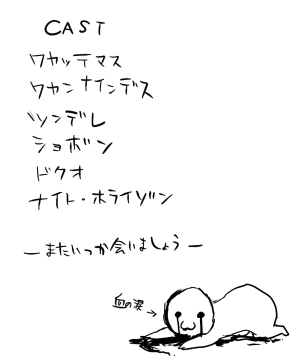 CAST
ワカッテマス
ワカンナインデス
ツンデレ
ショボン
ドクオ
ナイト・ホライゾン
―またいつか会いましょう―
血の涙→